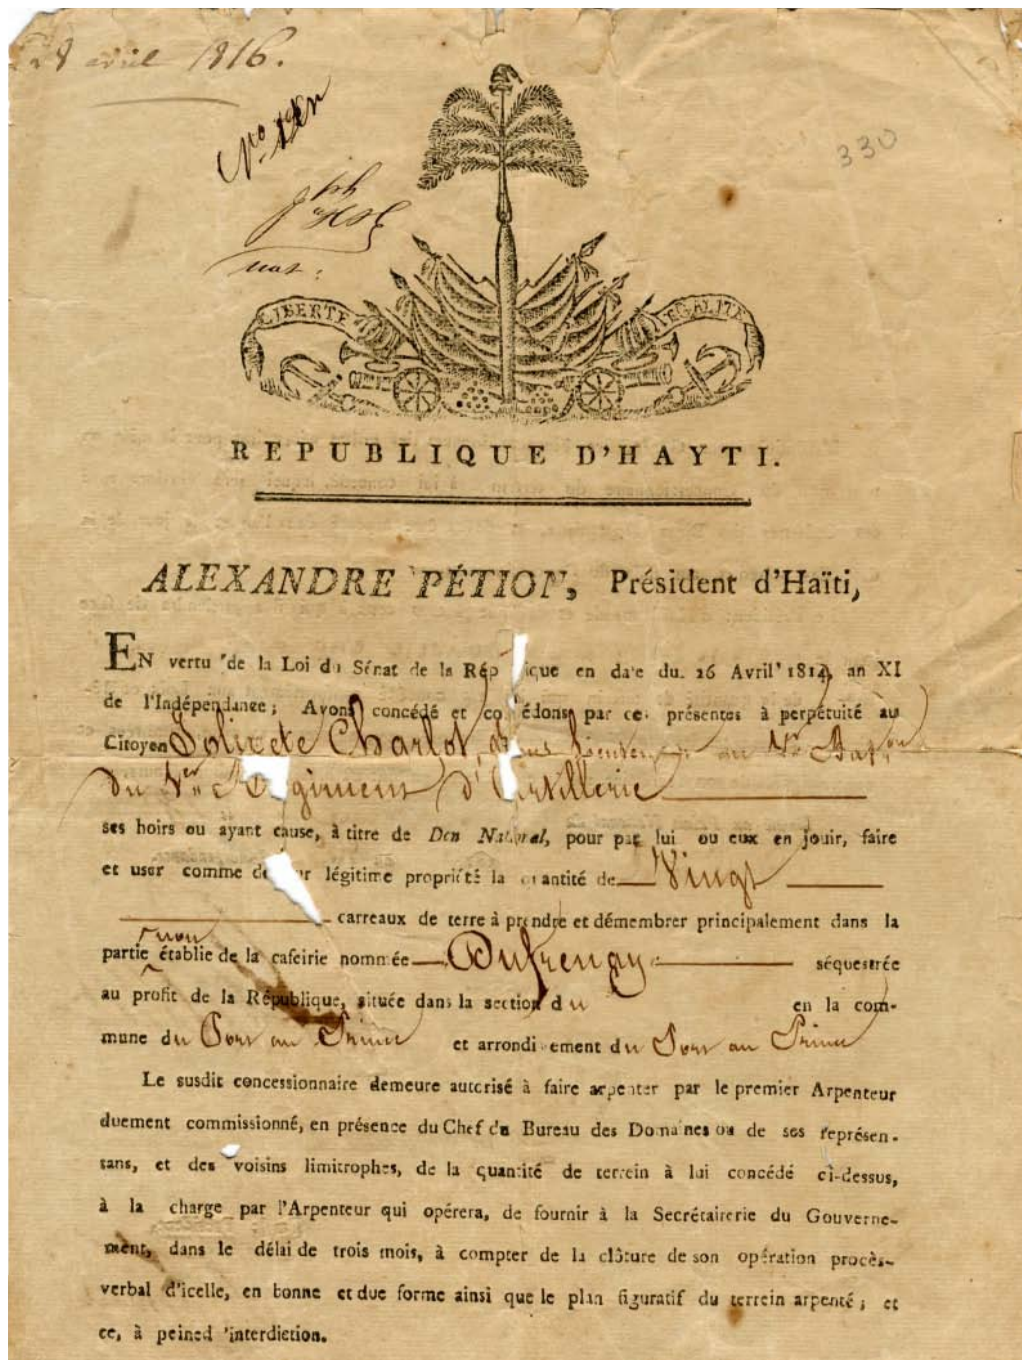 28 avril 1816.
330
LIBERTÉ EGALITÉ
REPUBLIQUE D'HAYTI.
ALEXANDRE PÉTION, Président d'Haïti,
EN vertu de la Loi du Sénat de la Rép ique en date du 26 Avril 1814, an XI
de l'Indépendance; Avons concédé et co édons par ces présentes à perpétuité au
Citoyen Charlot, au 1er Baton
du 1er Régiment d'Artillerie
ses hoirs ou ayant cause, à titre de Don National, pour par lui ou eux en jouir, faire
et user comme de ur légitime propriété la quantité de Vingt
carreaux de terre à prendre et démembrer principalement dans la
partie non établie de la cafeirie nommée Dufrenay séquestrée
au profit de la République, située dans la section du en la com-
mune du Port au Prince et arrondissement du Port au Prince
Le susdit concessionnaire demeure autorisé à faire arpenter par le premier Arpenteur
duement commissionné, en présence du Chef du Bureau des Domaines ou de ses représen-
tans, et des voisins limitrophes, de la quantité de terrein à lui concédé ci-dessus,
à la charge par l'Arpenteur qui opérera, de fournir à la Secrétairerie du Gouverne-
ment, dans le délai de trois mois, à compter de la clôture de son opération procès-
verbal d'icelle, en bonne et due forme ainsi que le plan figuratif du terrein arpenté; et
ce, à peined 'interdiction.